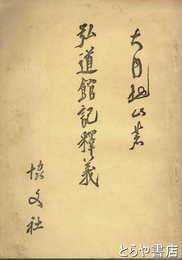 大月桃山著
弘道館記釋義
協文社
とらや書店